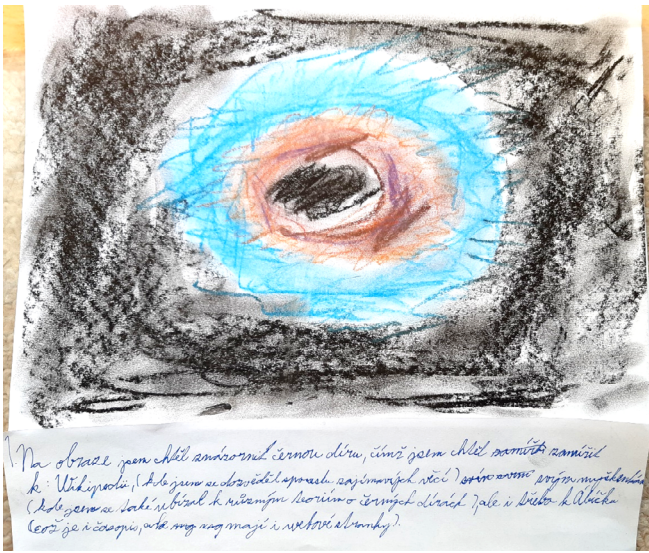 1. Na obraze jsem chtěl znázornit černou díru, čímž jsem chtěl zamířit
k: Wikipedii, (kde jsem se dozvěděl spoustu zajímavých věcí) svým myšlenkám
(kde jsem se také ubíral k různým teoriím o černých dírách) ale i třeba k Abíčka
(což je i časopis, mají i webové stránky).